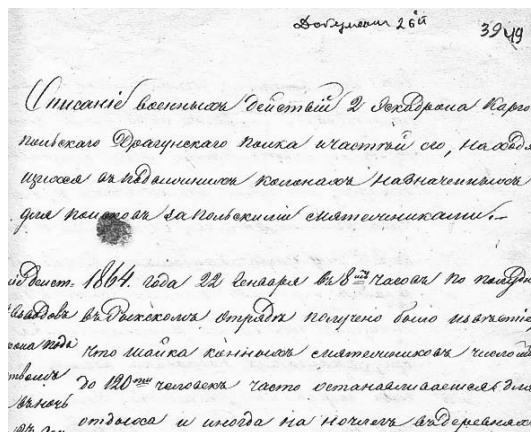 Документ 26й
39 49
Описаніе военныхъ действій 2 Эскадрона Карго
польскаго Драгунскаго полка и частей его, находя
щихся въ подвижныхъ колонахъ назначенныхъ
для поисковъ за польскими мятежниками.
1864. года 22 Генваря въ 8мь часовъ по полудни
въ отрядѣ получено было извѣстіе
что шайка конныхъ мятежниковъ числомъ
до 120ти человекъ часто останавливаемся для
отдыха и иногда на ночлегъ въ деревняхъ